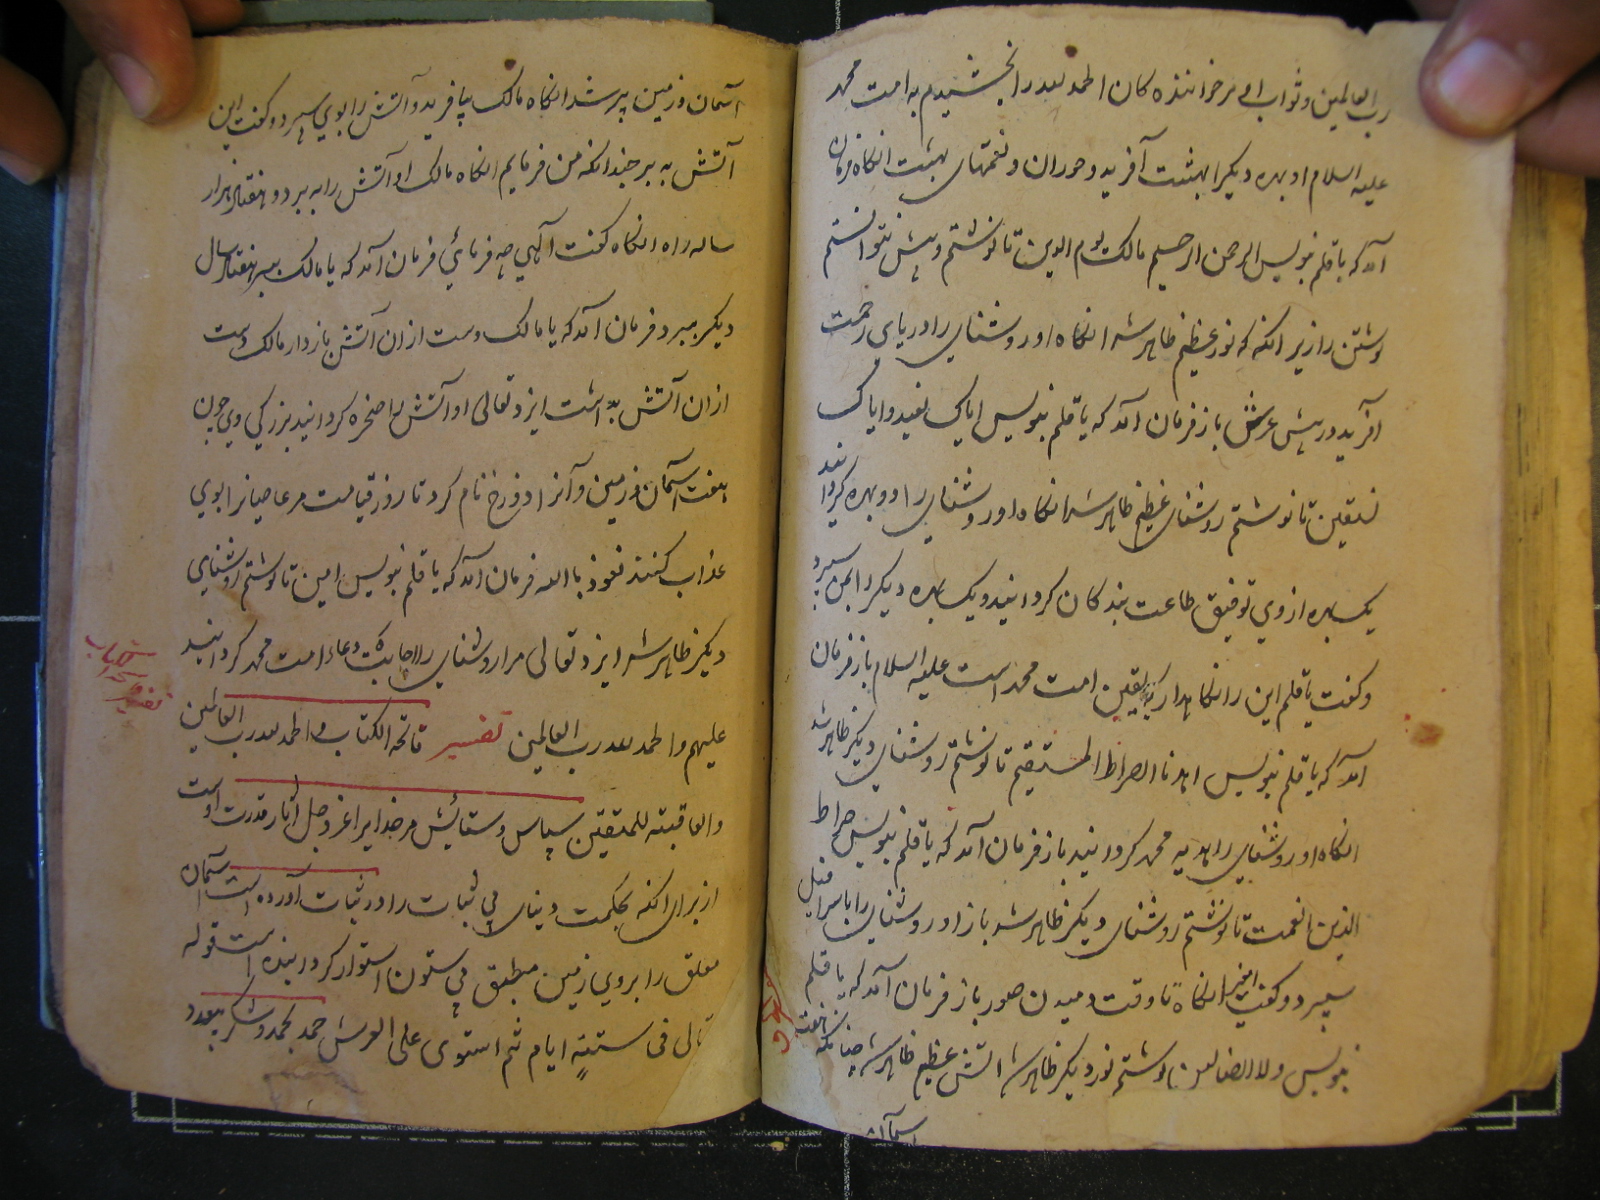 رب العالمین و ثواب او مر خواننده کان الحمد لله را بخشیدم به امت محمد
علیه السلام او بهره دیگر ابهشت آفرید و حوران و نعمتهای بهشت انگاه فرمان
آمد که یا قلم بنویس الرحمن الرحیم مالک یوم الدین تا نوشتم و پیش نتوانستم
نوشتن را زیر انکه که نور عظیم ظاهر شد انگاه او روشنای را دریای رحمت
آفرید در پیش عرش باز فرمان آمد که یا قلم بنویس ایاک نعبد و ایاک
نستعین تا نوشتم روشنای عظیم ظاهر شد انگاه او روشنای را دو بهره گردانید
یک بهره از وی توفیق طاعت بندکان کردانید و یک بهره دیگر
وکفت یا قلم این را نگاهدار که یقین امت محمد است علیه السلام باز فرمان
آمد که یا قلم بنویس اهدنا الصراط المستقیم تا نوشتم روشنای دیگر ظاهر شد
انگاه او روشنای را هدیه محمد کردانید باز فرمان آمد که یا قلم بنویس صراط
الذین انعمت تا نوشتم روشنای دیگر ظاهر شد باز او روشنای را باسرافیل
سپرد و کفت انگاه تا وقت دمیدن صور باز فرمان آمد که یا قلم
بنویس ولا الضالین تا نوشتم نور دیگر ظاهر شد اتش عظیم ظاهر شد چنانکه هفت
اسمان
اسمان و زمین پر شد انگاه مالک بیافرید و آتش را بوی سپرد و کفت این
آتش به بر چندانکه من فرمایم انگاه مالک او آتش را به برد و هفتاد هزار
ساله راه انگاه کفت الهی چه فرمائی فرمان آمد که یا مالک ببر هفتاد سال
دیگر ببرد فرمان آمد که یا مالک دست از ان آتش بازدار مالک دست
از ان آتش بداشت ایزد تعالی او آتش را صخره کردانید بزرگی وی چون
هفت آسمان و زمین و آنرا دوزخ نام کرد تا روز قیامت مر عاصیانرا بوی
عذاب کنند نعوذ بالله فرمان آمد که یا قلم بنویس امین تا نوشتم روشنای
دیگر ظاهر شد ایزد تعالی مر او روشنای را اجابت دعاء امت محمد کردانید
علیهم والحمد لله رب العالمین تفسیر فاتحة الکتاب الحمد لله رب العالمین
والعاقبته للمتقین سپاس و ستائیش مر خدایرا عز و جل آثار قدرت اوست
از برای انکه بحکمت و بینای بی ثبات را در ثبات آورده است آسمان
معلق را بروی زمین مطبق بی ستون استوار کردانیده است قوله
تعالی فی ستته ایام ثم استوی علی العرش حمد بحمد و شکر بیعدد